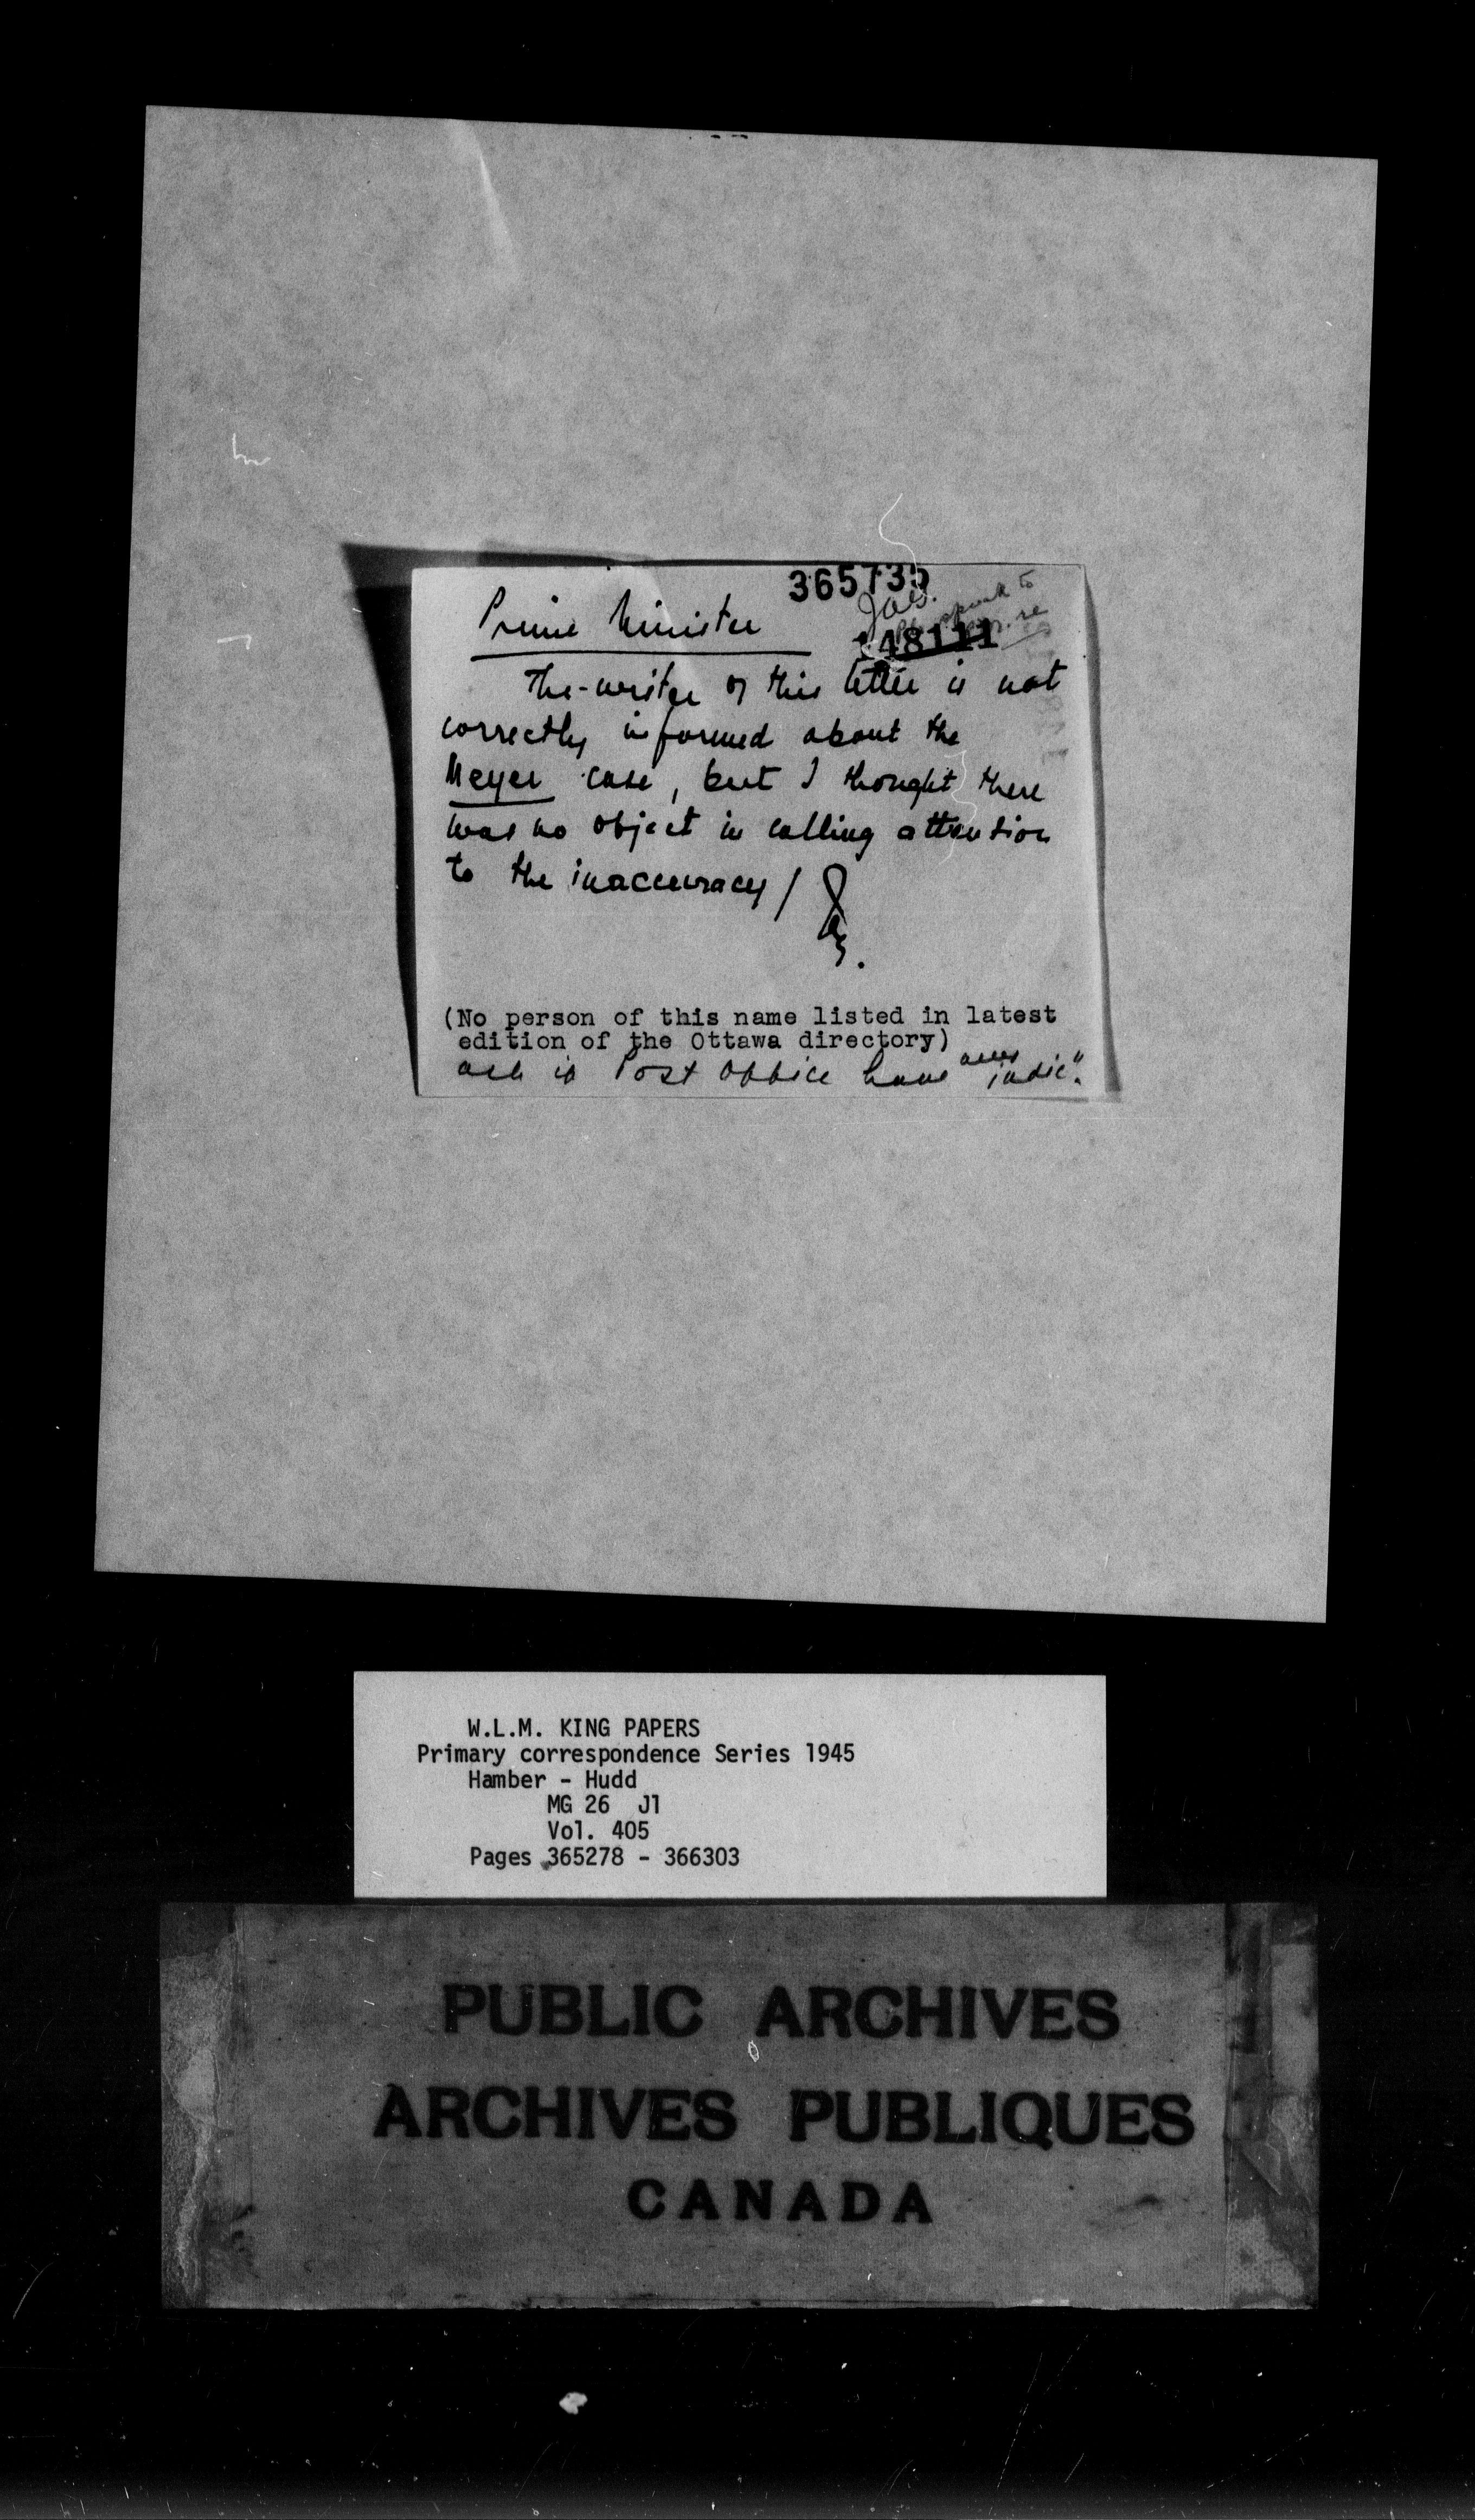 365735
Prime Minister
48111
The writer of this letter is not
correctly informed about the
Meyer case, but I thought there
was no object in calling attention
to the inaccuracy /
(No person of this name listed in latest
edition of the Ottawa directory)
ask if Post Office have any "indic."
W.L.M. KING PAPERS
Primary correspondence Series 1945
Hamber - Hudd
MG 26 J1
Vol. 405
Pages 365278 - 366303
PUBLIC ARCHIVES
ARCHIVES PUBLIQUES
CANADA